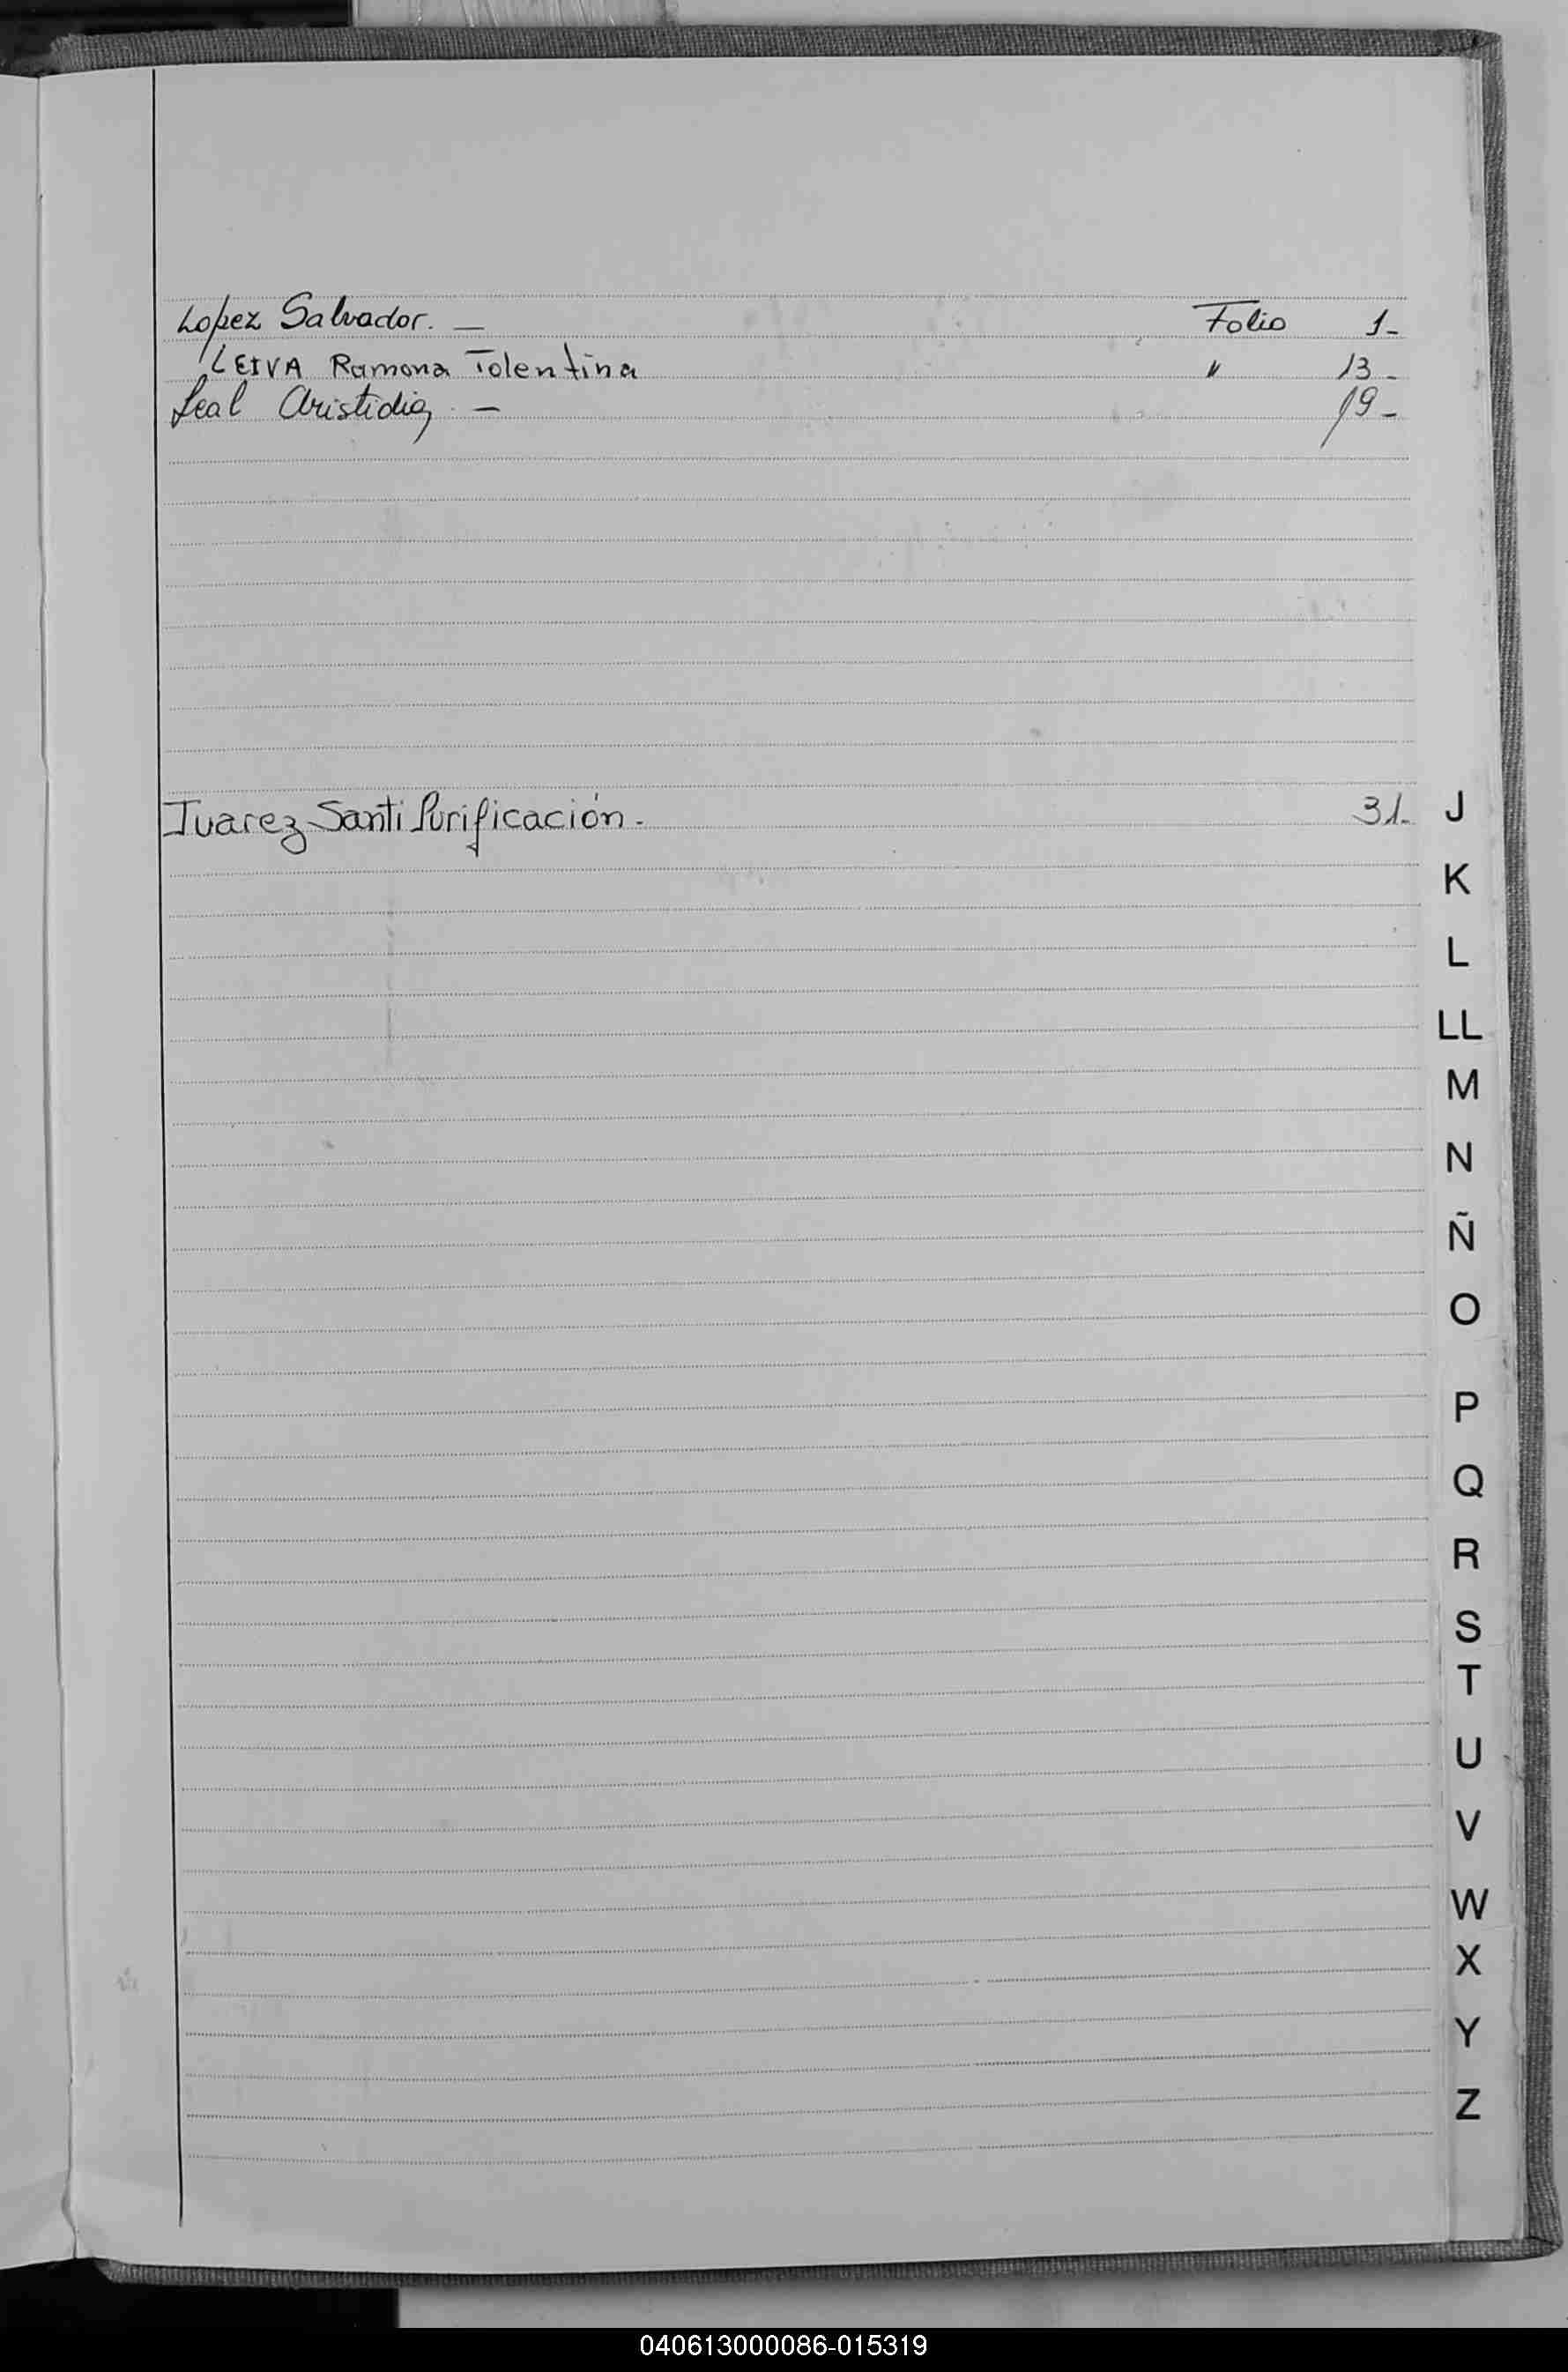 Lopez Salvador. — Folio 1-
LEIVA Ramona Tolentina " 13-
Leal Aristidia - — 19-
Juarez Santi Purificación. 31-
J
K
L
LL
M
N
Ñ
O
P
Q
R
S
T
U
V
W
X
Y
Z
040613000086-015319